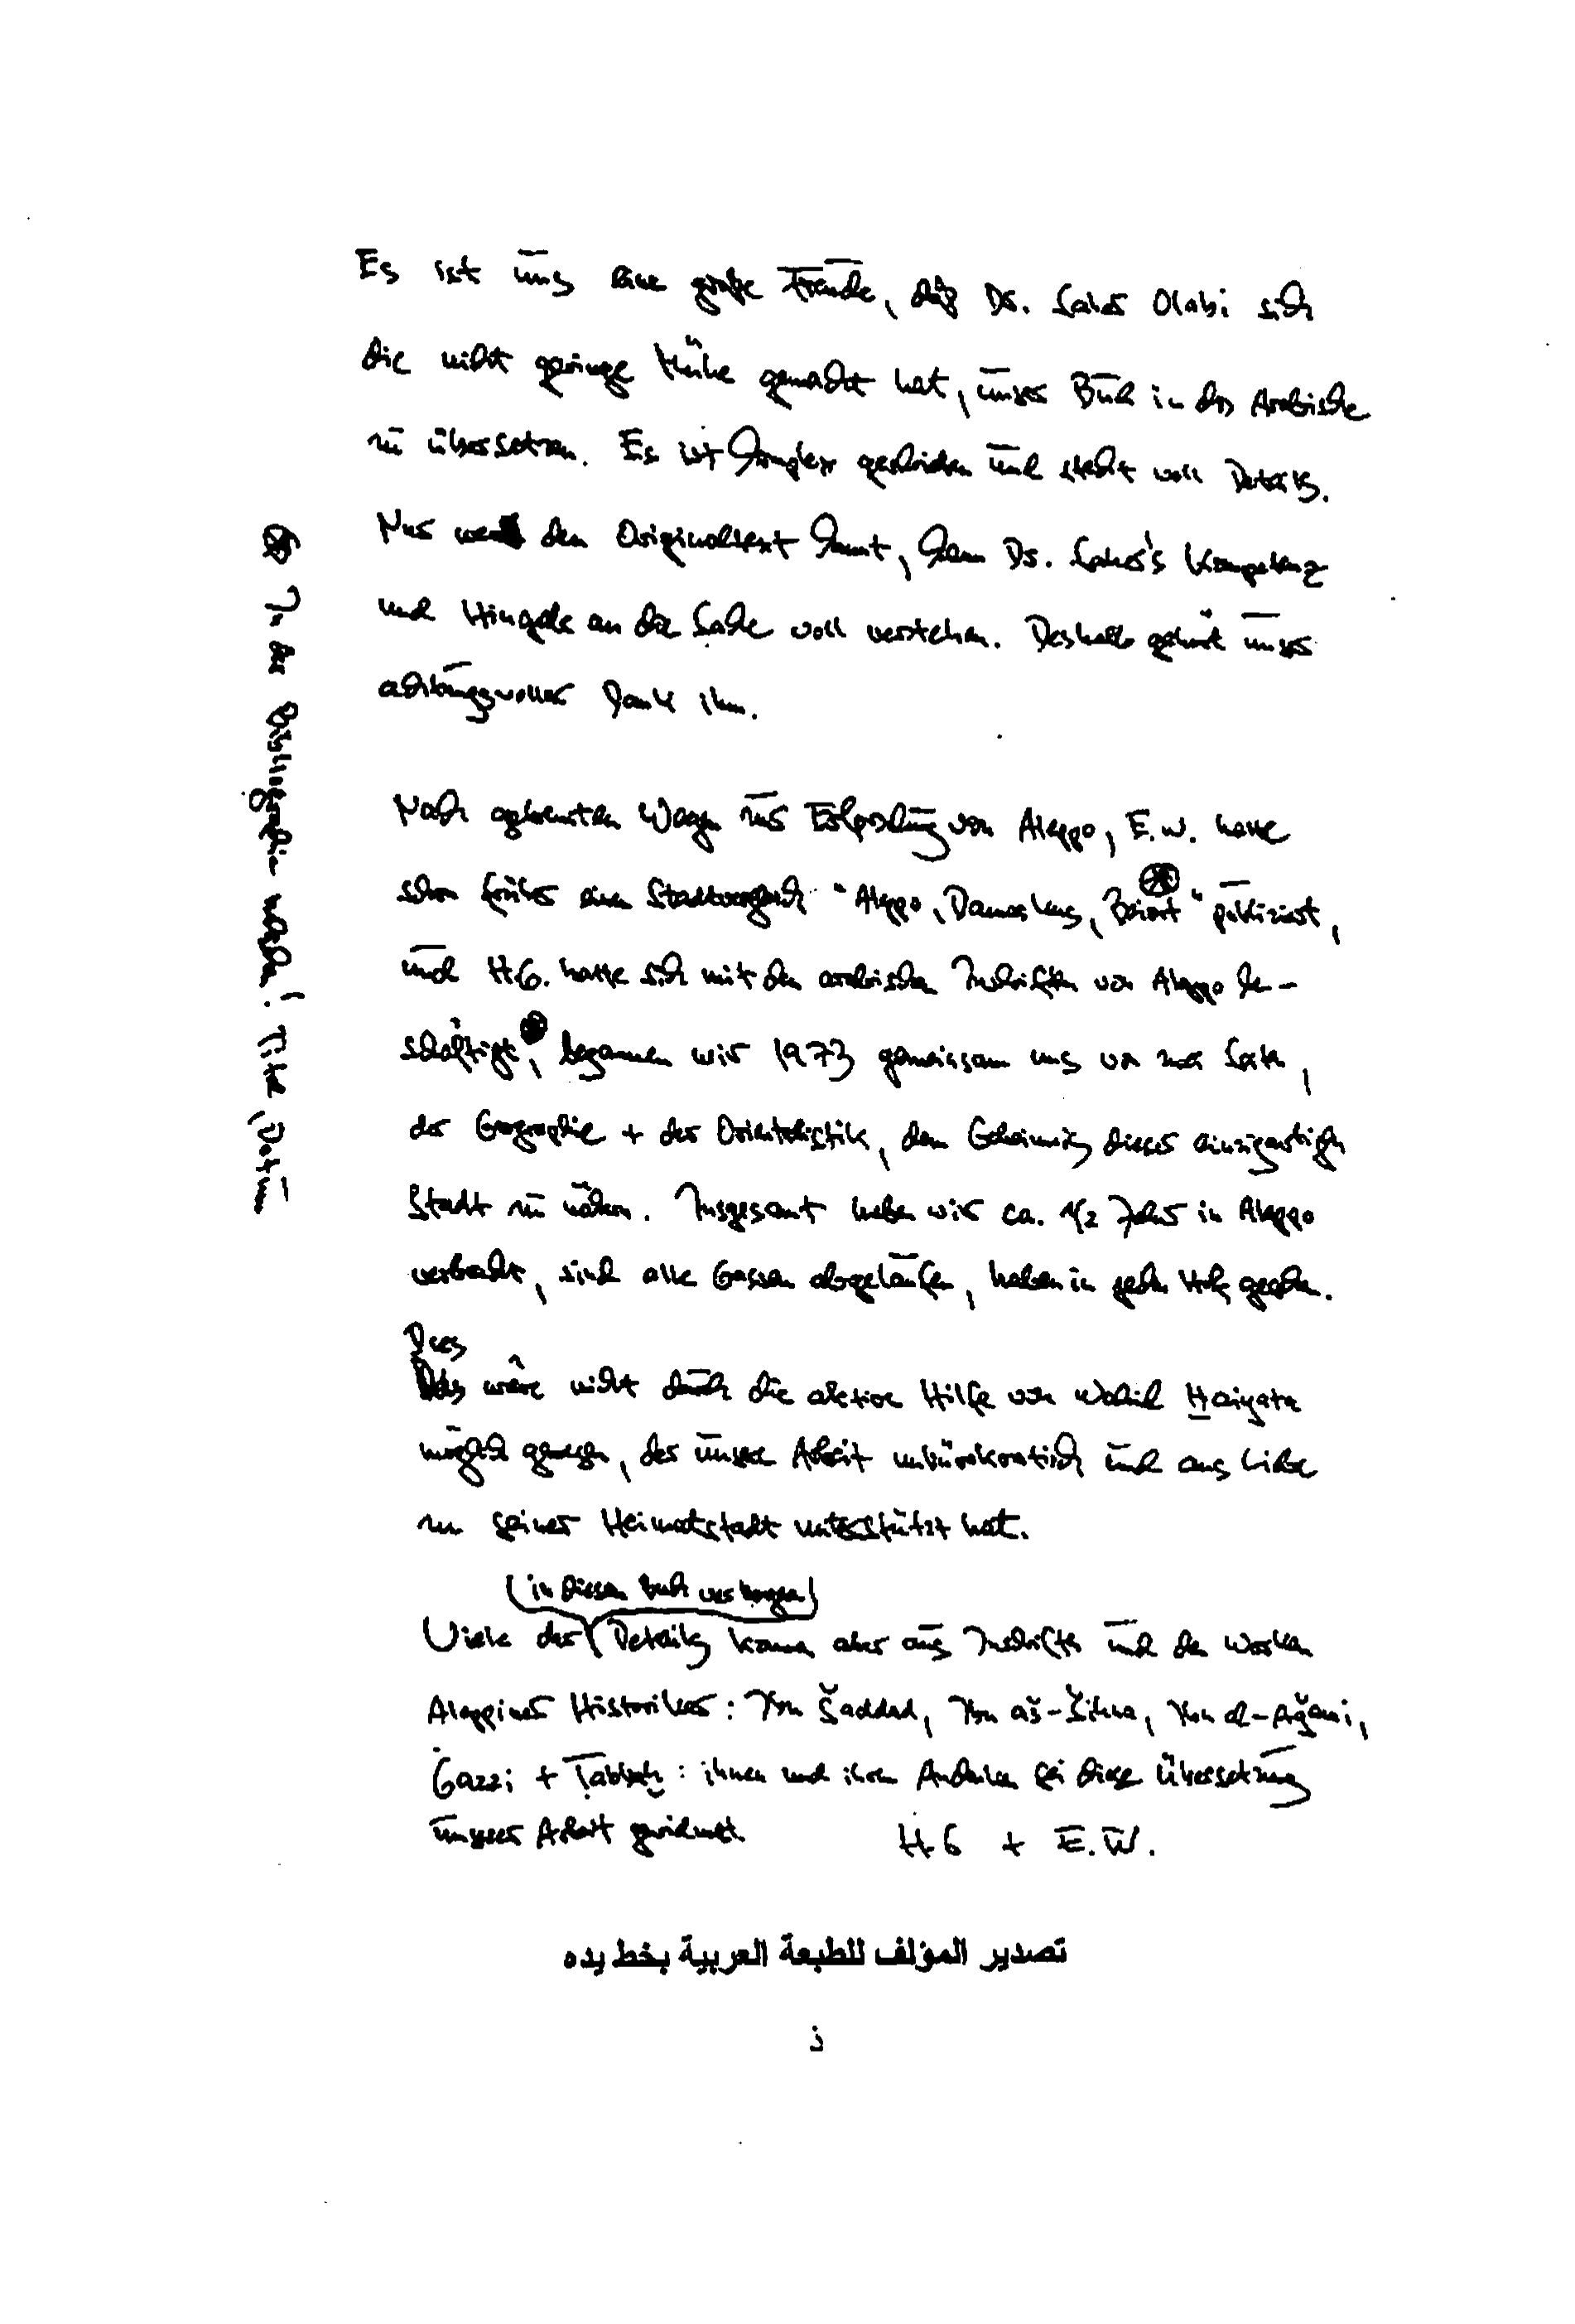 Es ist uns eine große Freude, daß Dr. Saher Olabi sich
die nicht geringe Mühe gemacht hat, unser Buch in das Arabische
zu übersetzen. Es ist komplex geschrieben und steckt voll Details.
Nur wer den Originaltext kennt, kann Dr. Saher's Kompetenz
und Hingabe an die Sache voll verstehen. Deshalb gehört unser
achtungsvoller Dank ihm.
Nach getrennten Wegen zur Erforschung von Aleppo, E.W. hatte
schon früher einen Stadtvergleich "Aleppo, Damaskus, Beirut" publiziert,
und H.G. hatte sich mit den arabischen Inschriften von Aleppo be-
schäftigt, begannen wir 1973 gemeinsam uns von zwei Seiten,
der Geographie + der Orientalistik, dem Geheimnis dieser einzigartigen
Stadt zu nähern. Insgesamt haben wir ca. 1/2 Jahr in Aleppo
verbracht, sind alle Gassen abgelaufen, haben in jeden Hof gesehen.
Dies
wäre nicht durch die aktive Hilfe von Wahid H̱aiyata
möglich gewesen, der unsere Arbeit unbürokratisch und aus Liebe
zu seiner Heimatstadt unterstützt hat.
(in diesem Buch verborgen)
Viele der Details kamen aber aus Inschriften und den Werken
Aleppiner Historiker: Ibn Šaddad, Ibn aš-Šiḥna, Ibn al-Aǧami,
Ġazzi + Ṭabbaḫ: ihnen und ihrem Andenken sei diese Übersetzung
unserer Arbeit gewidmet. HG + E.W.
⊛ In der Bibliographie ! Titel, Datum
تصدير المؤلف للطبعة العربية بخط يده
ز